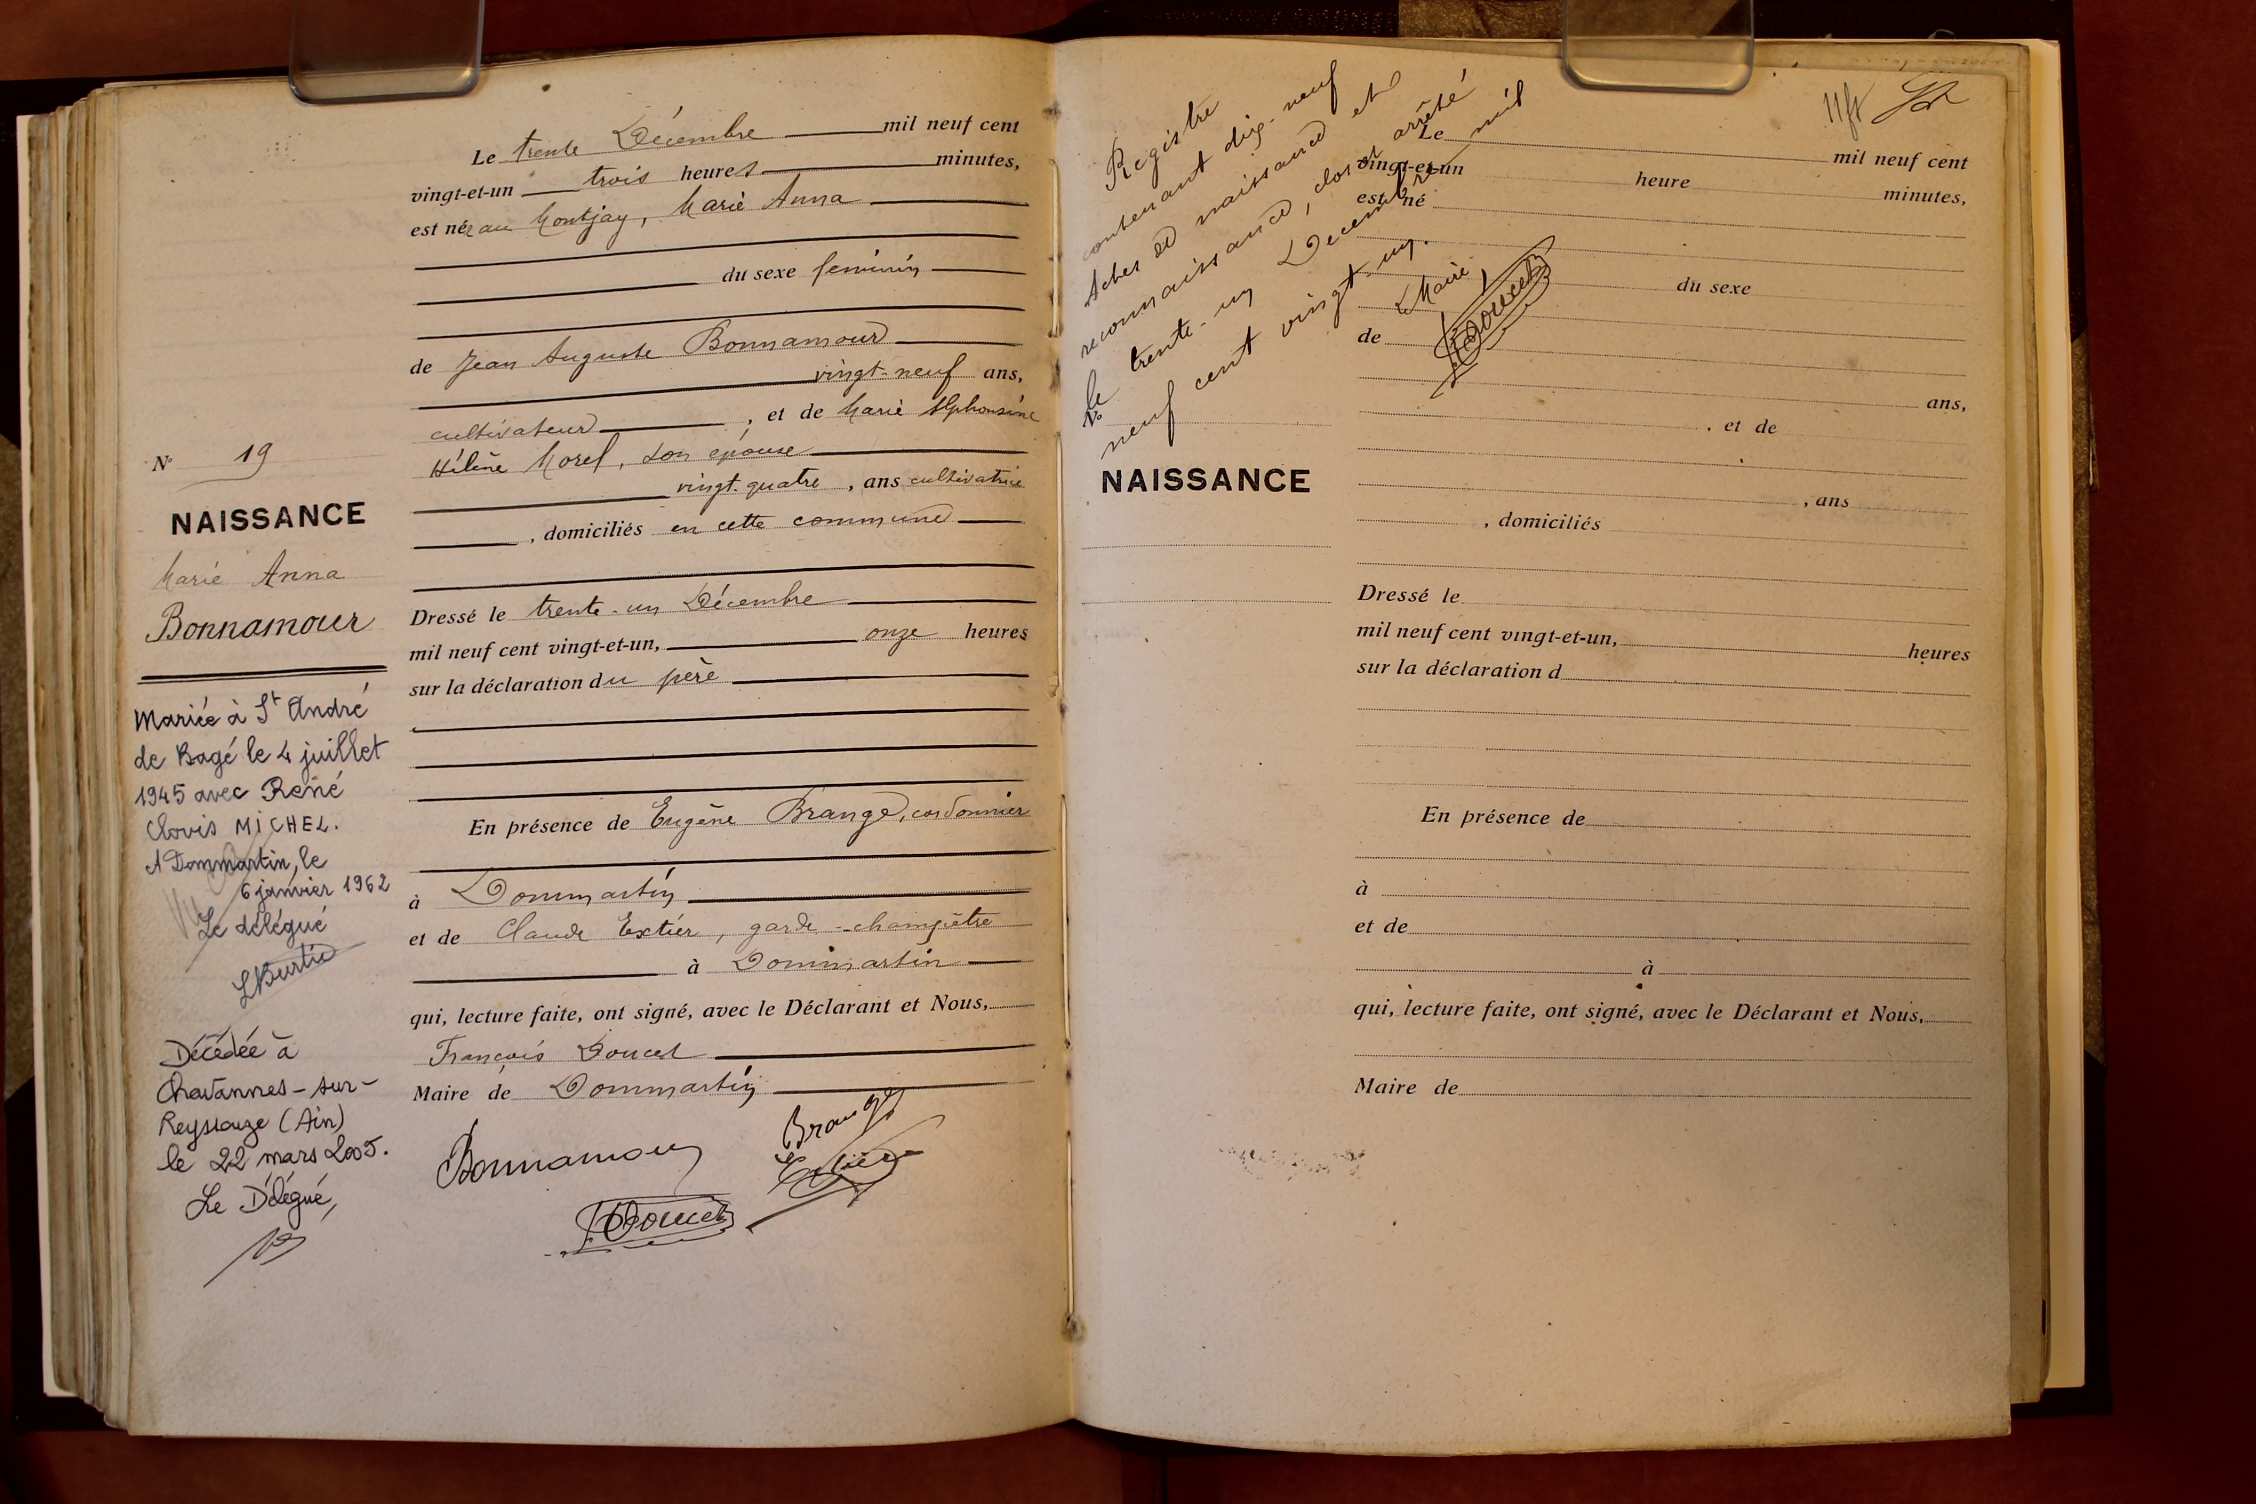 Le trente Décembre mil neuf cent
vingt-et-un trois heures minutes,
est née au Montjay, Marie Anna
du sexe féminin
de Jean Auguste Bonnamour
vingt-neuf ans,
cultivateur, et de Marie Alphonsine
Hélène Morel, son épouse
vingt-quatre, ans cultivatrice
, domiciliés en cette commune
Dressé le trente-un Décembre
mil neuf cent vingt-et-un, onze heures
sur la déclaration du père
En présence de Eugène Brange, cordonnier
à Dommartin
et de Claude Extier, garde-champêtre
à Dommartin
qui, lecture faite, ont signé, avec le Déclarant et Nous,
François Doucet
Maire de Dommartin
Bonnamour
Brange
Extier
F. Doucet
N° 19
NAISSANCE
Marie Anna
Bonnamour
Mariée à St André
de Bagé le 4 juillet
1945 avec René
Clovis MICHEL.
A Dommartin, le
6 janvier 1962
Le délégué
Décédée à
Chavannes-sur-
Reyssouze (Ain)
le 22 mars 2005.
Le Délégué,
Registre
contenant dix-neuf
Actes de naissance et
reconnaissance, clos et arrêté
le trente-un Décembre mil
neuf cent vingt-un.
Maire,
F. Doucet
N°
NAISSANCE
Le mil neuf cent
vingt-et-un heure minutes,
est né
du sexe
de
ans,
, et de
, ans
, domiciliés
Dressé le
mil neuf cent vingt-et-un, heures
sur la déclaration d
En présence de
à
et de
à
qui, lecture faite, ont signé, avec le Déclarant et Nous,
Maire de